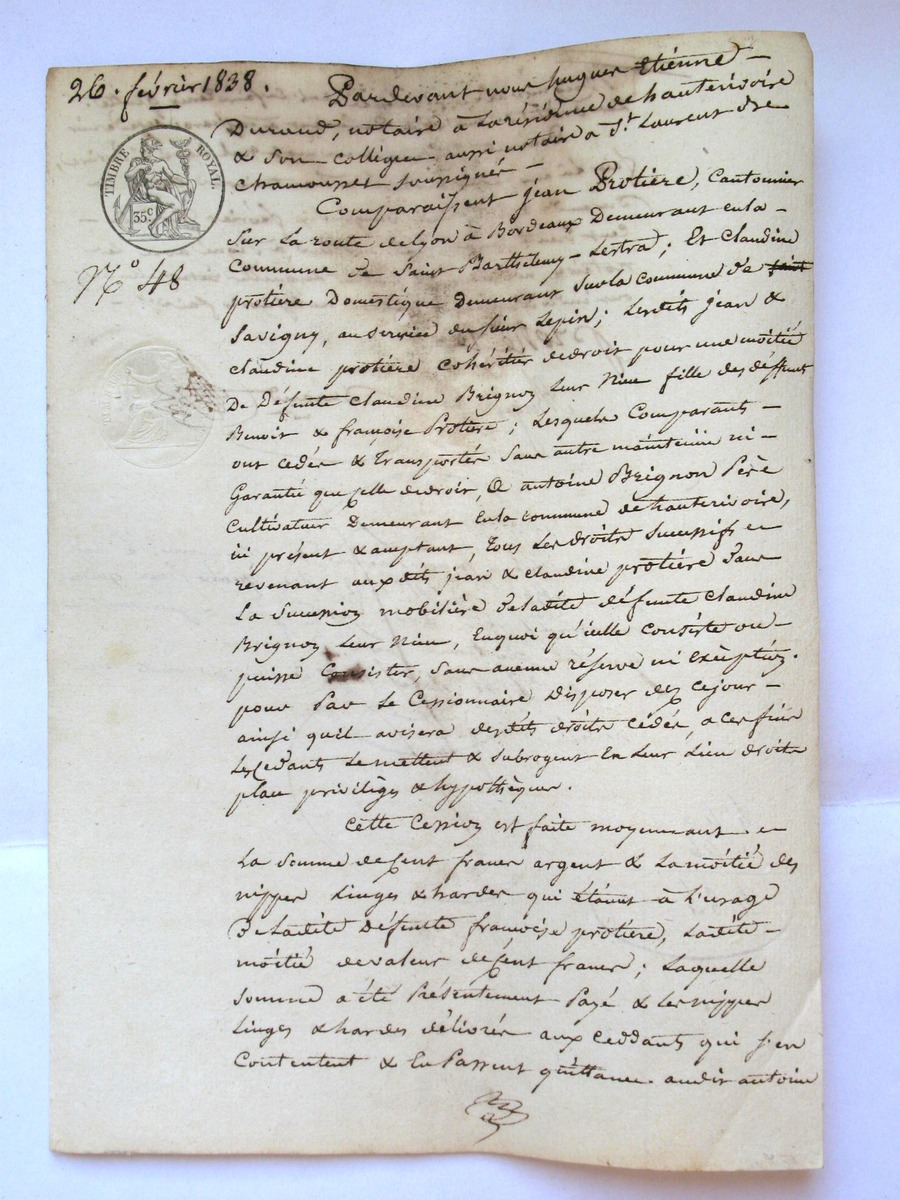 26. février 1838.
TIMBRE ROYAL.
35c
No 48
Pardevant nous hugues Etienne
Durand, notaire à la résidence de hauterivoire
& Son collègue aussi notaire a St. Laurent de
chamousset soussignés
Comparaissent jean Protière, Cantonnier
Sur La route de Lyon à Bordeaux Demeurant en la
Commune de Saint Barthelemy-Lestra; Et Claudine
protière Domestique Demeurant Sur la commune de saint
Savigny, au service du sieur Lepin; Lesdits jean &
claudine protière cohéritiers de droit pour une moitié
De Défunte Claudine Brignon leur Niece fille des deffunts
Benoit & françoise Protière; Lesquels Comparants
ont cédés & transportés Sans autre maintenue ni
Garantie que celle de droit, A antoine Brignon Père
Cultivateur Demeurant En la commune de hauterivoire,
ici présent & acceptant, tous Les droits successifs
revenant auxdits jean & claudine protière dans
La Succession mobilière de ladite défunte Claudine
Brignon Leur Niece, En quoi qu'icelle consiste ou
puisse Consister, Sans aucune réserve ni Exception.
pour Par Le Cessionnaire disposer dez ce jour
ainsi qu'il avisera desdits droits cédés, a ces fins
Les cedants Le mettent & Subrogent En Leur Lieu droits
place privilèges & hypothèques.
Cette Cession est faite moyennant
La Somme de Cent francs argent & La moitié des
nippes Linges & hardes qui Etaient à L'usage
de Ladite défunte françoise protière, Ladite
moitié de valeur de Cent francs; Laquelle
Somme a été Présentement Payé & Les nippes
Linges & hardes délivrés aux ceddants qui s'en
Contentent & En Passent quittance audit antoine